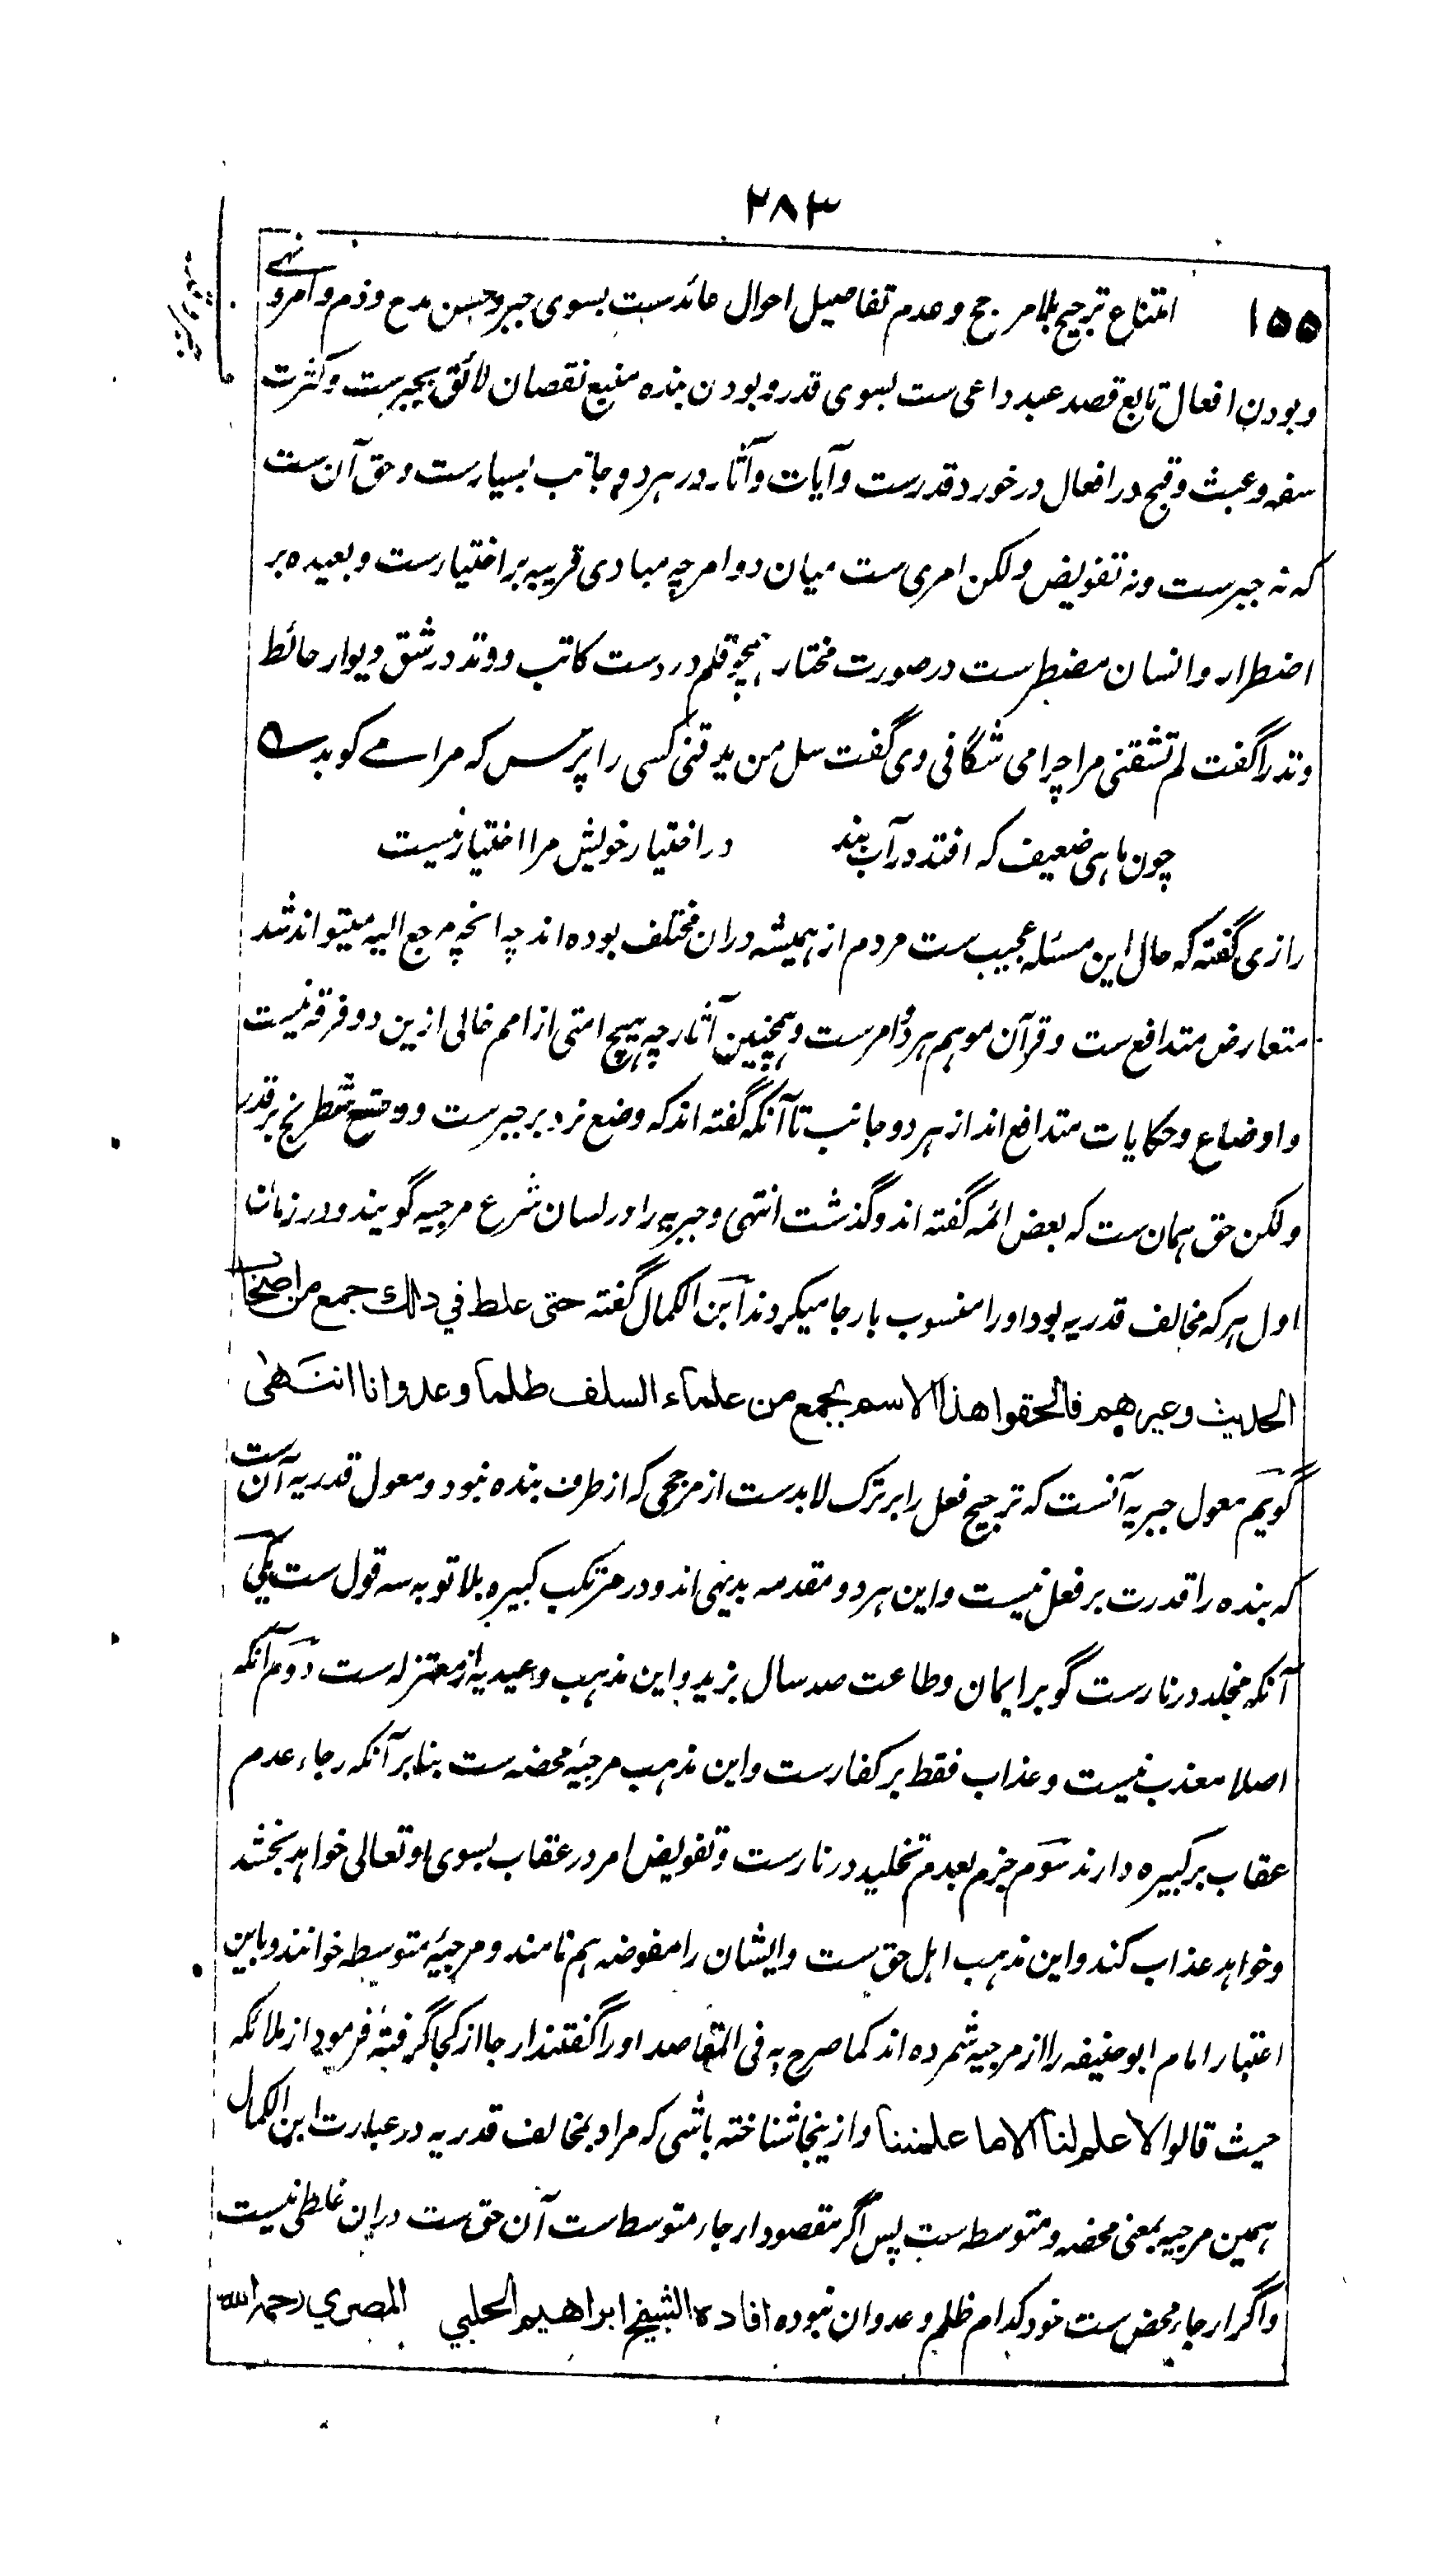 ۲۸۳
۱۵۵ امتناع ترجیح بلا مرجح وعدم تفاصیل احوال عائدست بسوی جبر وحسن مدح وذم وامر و نهے
وبودن افعال تابع قصد عبد داعی ست بسوی قدر و بودن بنده منبع نقصان لائق بجبرست وکثرت
سفه وعبث وقبح در افعال درخورد قدرست وآیات وآثار در هر دو جانب بسیارست وحق آن ست
که نه جبرست ونه تفویض ولکن امری ست میان دو امر چه مبادی قریبه بر اختیارست وبعیده بر
اضطرار وانسان مضطرست در صورت مختار همچو قلم در دست کاتب ووتد در شق دیوار حائط
وتد را گفت لم تشقنی مرا چرا می شگافی وی گفت سل من یدقنی کسی را پرس که مرا مے کوبد ۵
چون ماهی ضعیف که افتد در آب بند در اختیار خویش مرا اختیار نیست
رازی گفته که حال این مسئله عجیب ست مردم از همیشه دران مختلف بوده اند چه انچه مرجع الیه میتواند شد
متعارض متدافع ست وقرآن موهم هر دو امرست وهمچنین آثار چه هیچ امتی از امم خالی ازین دو فرقه نیست
واوضاع وحکایات متدافع اند از هر دو جانب تا آنکه گفته اند که وضع نرد بر جبرست ووضع شطرنج بر قدر
ولکن حق همان ست که بعض ائمه گفته اند وگذشت انتهی وجبریه را در لسان شرع مرجیه گویند ودر زمان
اول هر که مخالف قدریه بود اورا منسوب بارجا میکردند ابن الکمال گفته حتی غلط في ذلك جمع من اصحاب
الحدیث وغیرهم فالحقوا هذا الاسم بجمع من علماء السلف ظلما وعدوانا انتهی
گویم معول جبریه آنست که ترجیح فعل را بر ترک لابدست از مرجحی که از طرف بنده نبود ومعول قدریه آن ست
که بنده را قدرت بر فعل نیست واین هر دو مقدمه بدیهی اند ودر مرتکب کبیره بلا توبه سه قول ست یکی
آنکه مخلد در نارست گو بر ایمان وطاعت صد سال بزید واین مذهب وعیدیه از معتزله ست دوم آنکه
اصلا معذب نیست وعذاب فقط بر کفارست واین مذهب مرجیۀ محضه ست بنابر آنکه رجاء عدم
عقاب بر کبیره دارند سوم جزم بعدم تخلید در نارست وتفویض امر در عقاب بسوی او تعالی خواهد بخشد
وخواهد عذاب کند واین مذهب اهل حق ست وایشان را مفوضه هم نامند ومرجیۀ متوسطه خوانند وباین
اعتبار امام ابو حنیفه را از مرجیه شمرده اند کما صرح به فی المقاصد اورا گفتند ارجا از کجا گرفتۀ فرمود از ملائکه
حیث قالوا لا علم لنا الا ما علمتنا وازینجا شناخته باشی که مراد بمخالف قدریه در عبارت ابن الکمال
همین مرجیه بمعنی محضه ومتوسطه ست پس اگر مقصود ارجاء متوسط ست آن حق ست دران غلطی نیست
واگر ارجاء محض ست خود کدام ظلم وعدوان نبوده افاده الشیخ ابراهیم الحلبي المصري رحمه الله